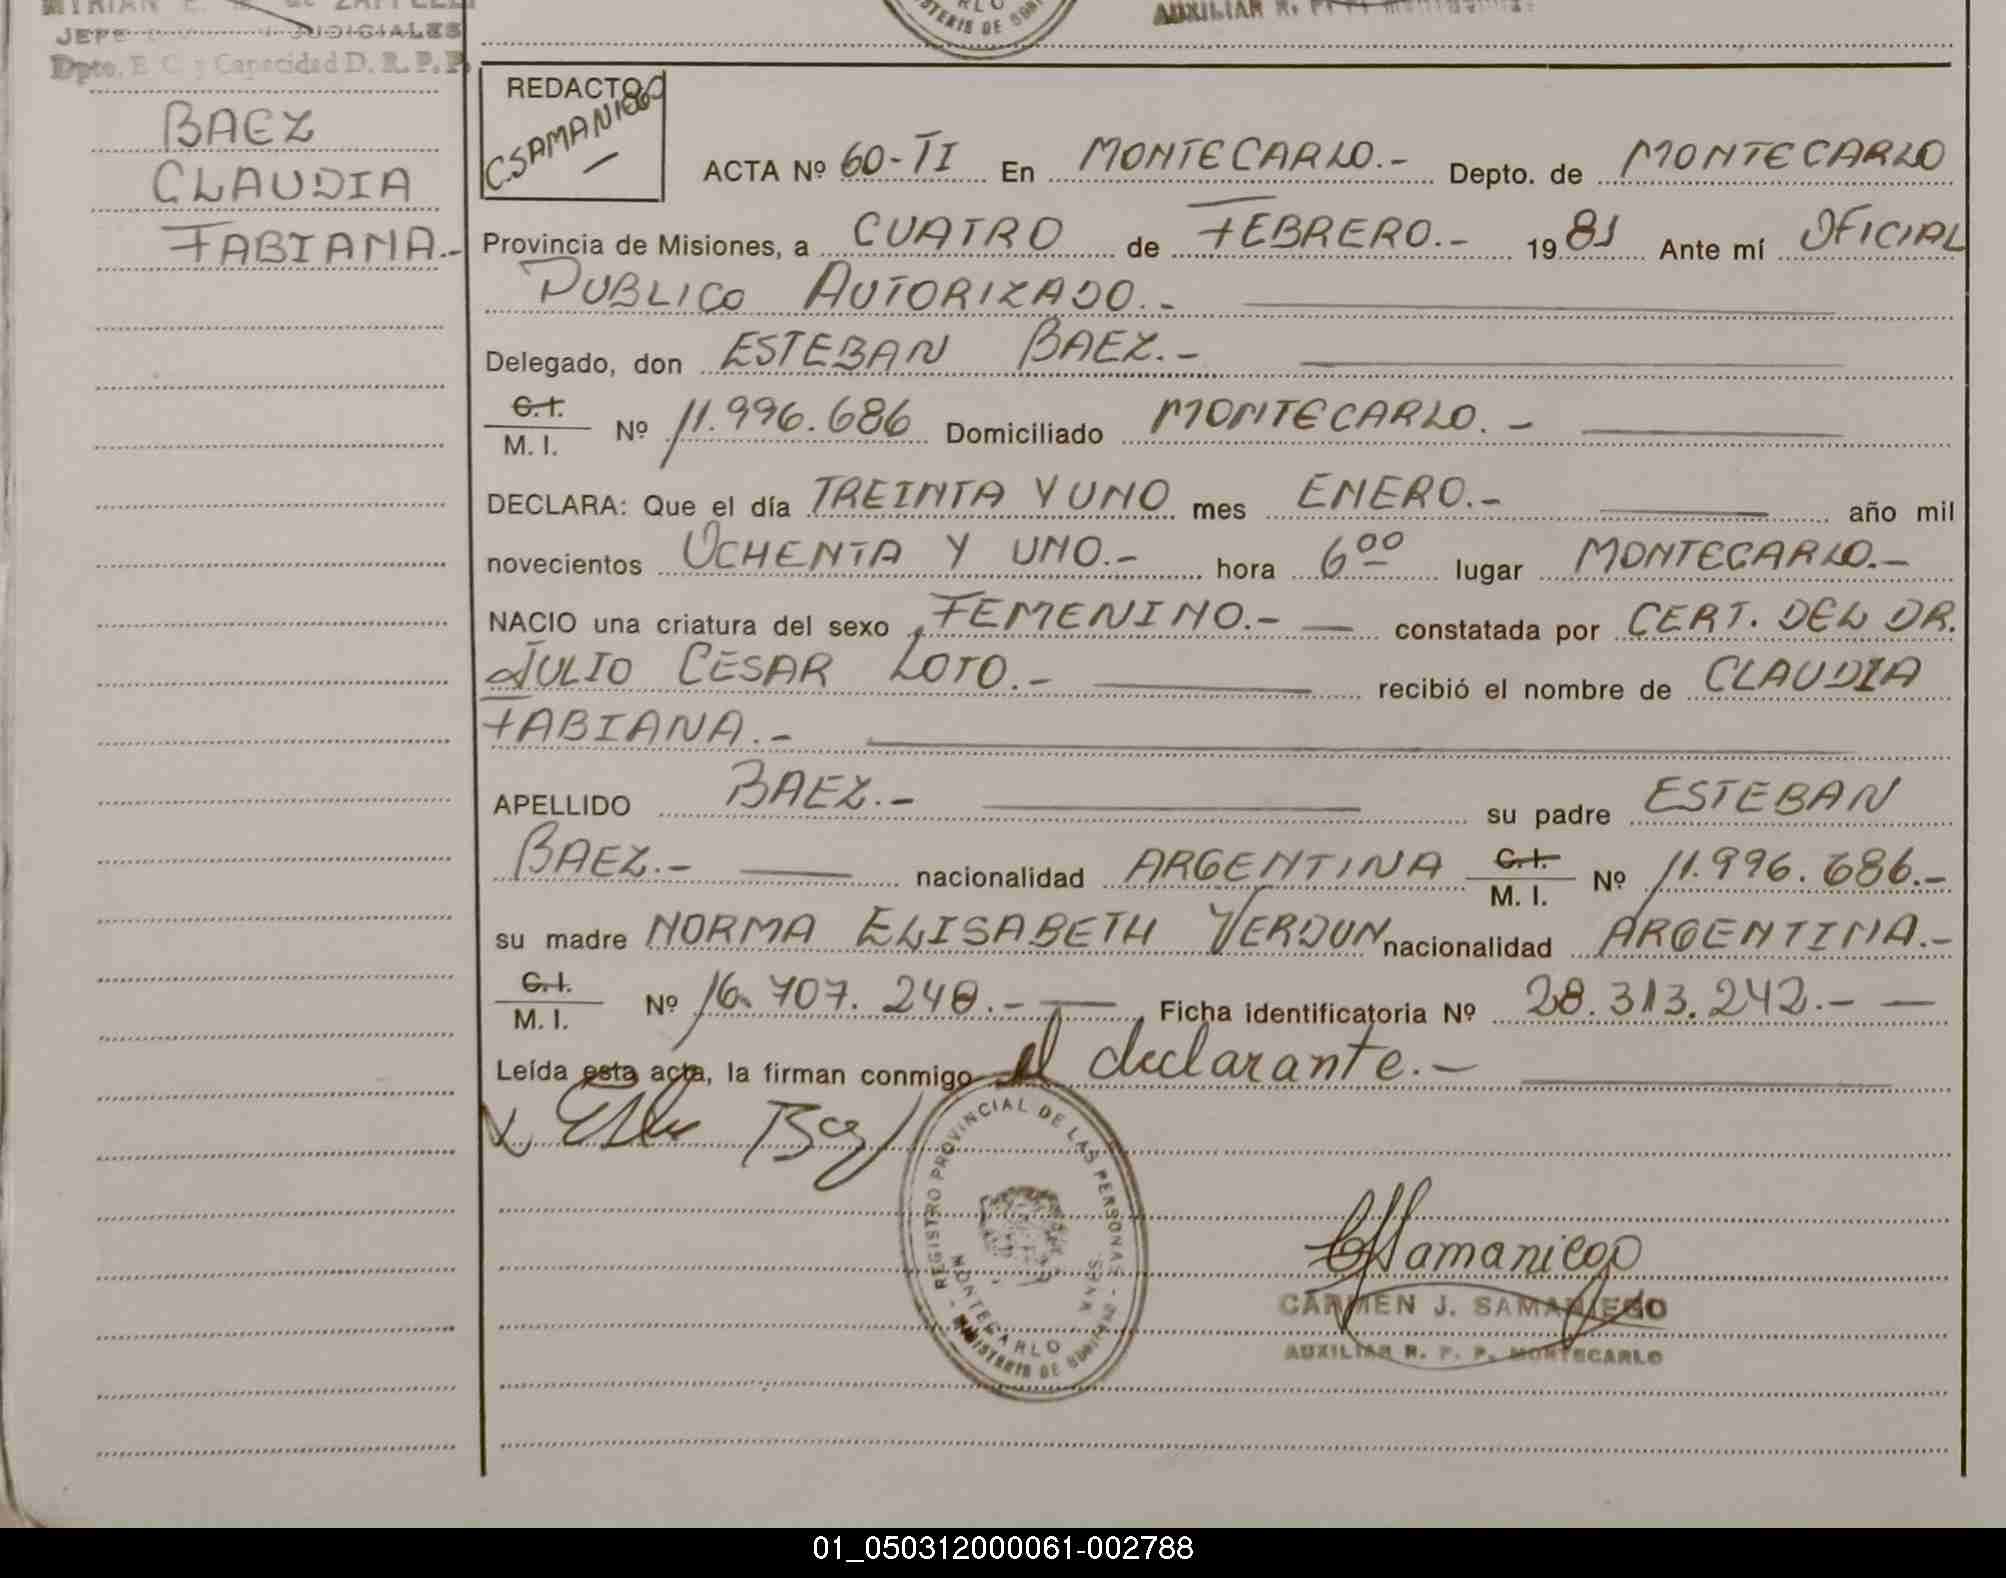 JEFE JUDICIALES
Dpto. E. C. y Capacidad D. R. P. P.
BAEZ
CLAUDIA
FABIANA.-
REDACTO
C. SAMANIEGO
ACTA Nº 60-TI En MONTECARLO.- Depto. de MONTECARLO
Provincia de Misiones, a CUATRO de FEBRERO.- 1981 Ante mí OFICIAL
PUBLICO AUTORIZADO.-
Delegado, don ESTEBAN BAEZ.-
C.I.
M. I. Nº 11.996.686 Domiciliado MONTECARLO.-
DECLARA: Que el día TREINTA Y UNO mes ENERO.- año mil
novecientos OCHENTA Y UNO.- hora 6⁰⁰ lugar MONTECARLO.-
NACIO una criatura del sexo FEMENINO.- constatada por CERT. DEL DR.
JULIO CESAR LOTO.- recibió el nombre de CLAUDIA
FABIANA.-
APELLIDO BAEZ.- su padre ESTEBAN
BAEZ.- nacionalidad ARGENTINA C.I. M. I. Nº 11.996.686.-
su madre NORMA ELISABETH VERDUN nacionalidad ARGENTINA.-
C.I.
M. I. Nº 16.707.248.- Ficha identificatoria Nº 28.313.242.-
Leída esta acta, la firman conmigo el declarante.-
REGISTRO PROVINCIAL DE LAS PERSONAS
MONTECARLO
CSamaniego
CARMEN J. SAMANIEGO
AUXILIAR R. P. P. MONTECARLO
01_050312000061-002788